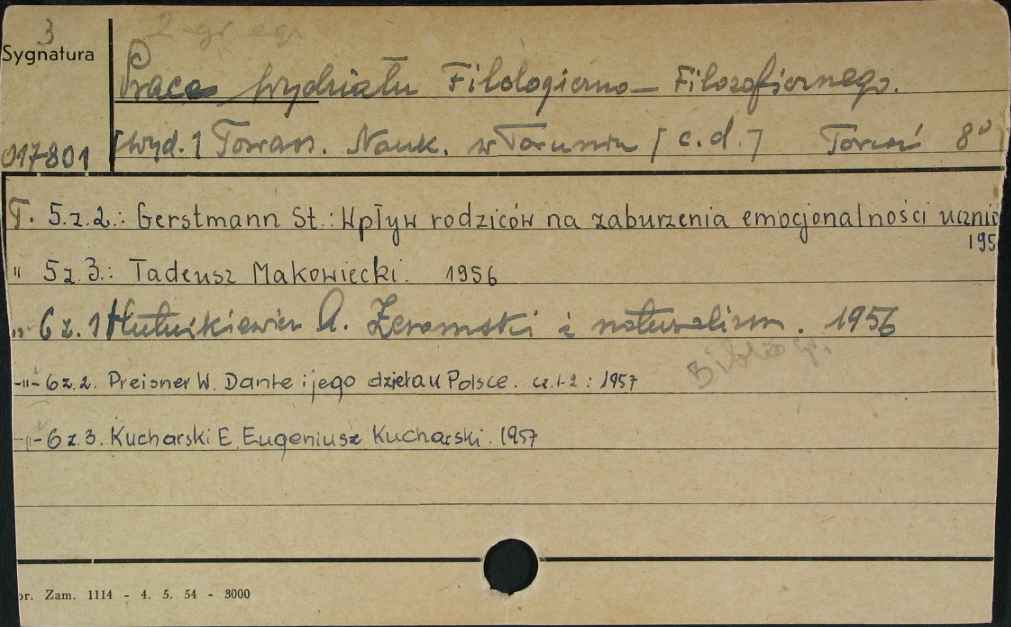 3 2 gr eg.
Sygnatura
Prace Wydziału Filologiczno-Filozoficznego.
017801 [wyd.] Towarz. Nauk. w Toruniu [c.d.] Toruń 8°
T. 5.z.2.: Gerstmann St.: Wpływ rodziców na zaburzenia emocjonalności ucznió
195
" 5z.3.: Tadeusz Makowiecki. 1956
„ 6 z.1 Hutnikiewicz A. Żeromski i naturalizm. 1956
-"- 6z.2. Preisner W. Dante i jego dzieła w Polsce. cz.1-2: 1957
-"- 6z.3. Kucharski E. Eugeniusz Kucharski. 1957
or. Zam. 1114 - 4. 5. 54 - 3000